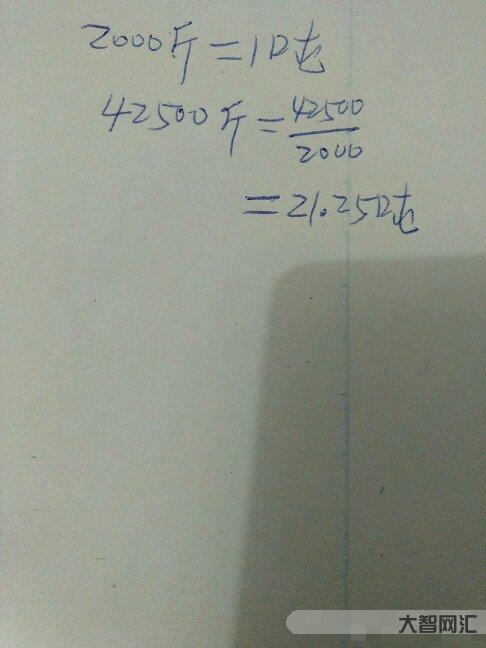 2000斤=1吨
42500斤=42500/2000
=21.25吨
大智网汇